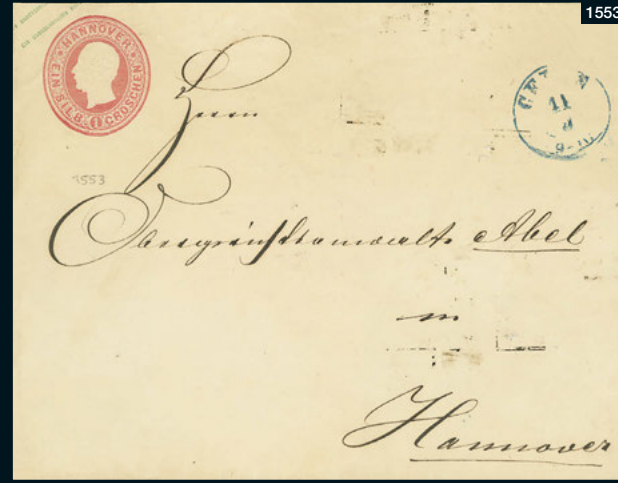 1553
HANNOVER
EIN SILB. 1 GROSCHEN
11
9-10
Herrn
1553
Obergerichtsanwalt Abel
in
Hannover